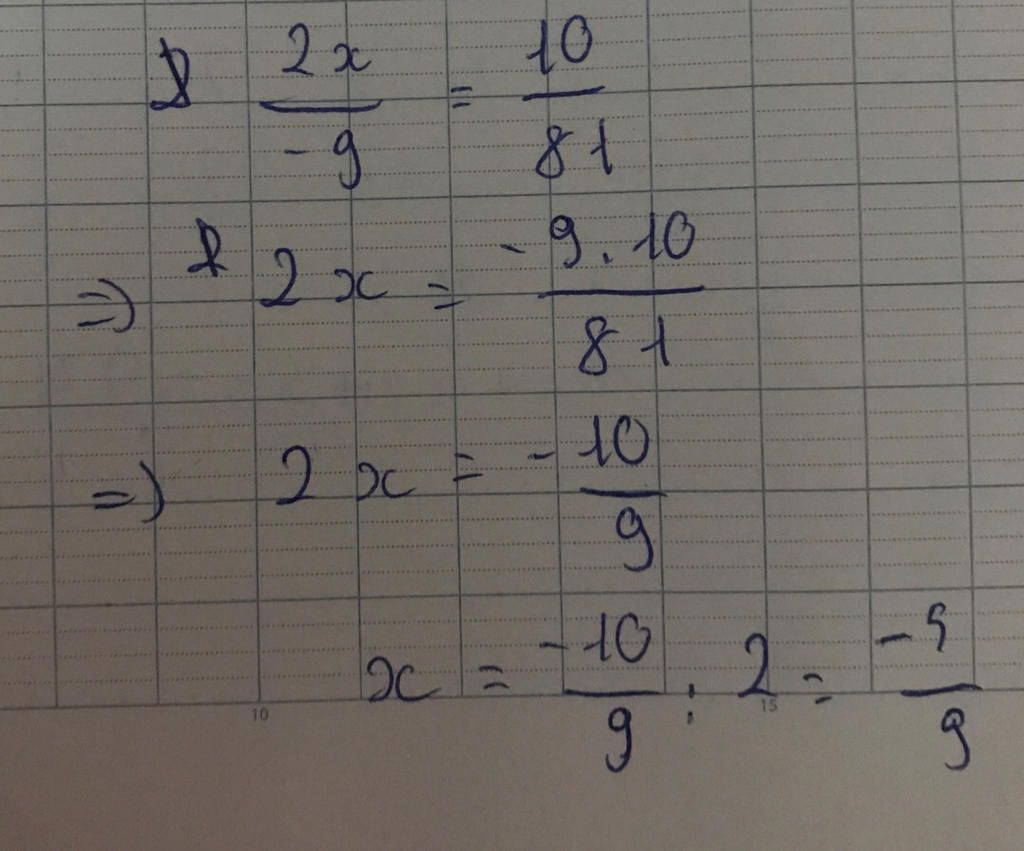 2x/-9 = 10/81
=> 2x = -9.10/81
=> 2x = -10/9
x = -10/9 : 2 = -5/9
10 15